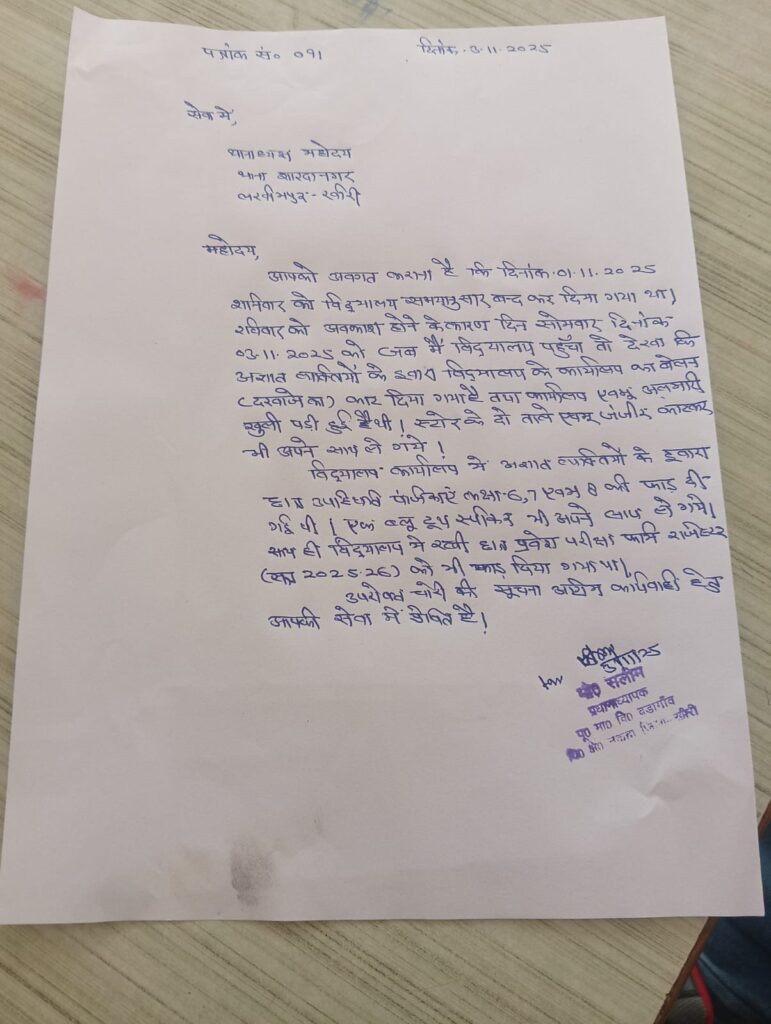 पत्रांक सं० 091
दिनांक. 3.11.2025
सेवा में,
थानाध्यक्ष महोदय
थाना शारदानगर
लखीमपुर-खीरी
महोदय,
आपको अवगत कराना है कि दिनांक.01.11.2025
शनिवार को विद्यालय समयानुसार बन्द कर दिया गया था।
रविवार को अवकाश होने के कारण दिन सोमवार दिनांक
03.11.2025 को जब मैं विद्यालय पहुँचा तो देखा कि
अज्ञात व्यक्तियों के द्वारा विद्यालय के कार्यालय का
(दरवाजे का) काट दिया गया है तथा कार्यालय एवम्
खुली पड़ी हुई थी। स्टोर के दो ताले एवम् जंजीर काटकर
भी अपने साथ ले गये।
विद्यालय कार्यालय में अज्ञात व्यक्तियों के द्वारा
छात्र उपस्थिति पंजिकाएं कक्षा-6,7 एवम् 8 की फाड़ दी
गई थी। एक ब्लू टूथ स्पीकर भी अपने साथ ले गये।
साथ ही विद्यालय में रखी छात्र प्रवेश परीक्षा फार्म रजिस्टर
(सत्र 2025-26) को भी फाड़ दिया गया था।
उपरोक्त चोरी की सूचना अग्रिम कार्यवाही हेतु
आपकी सेवा में प्रेषित है।
सलीम
प्रधानाध्यापक
पू० मा० वि० बडागाँव
खीरी